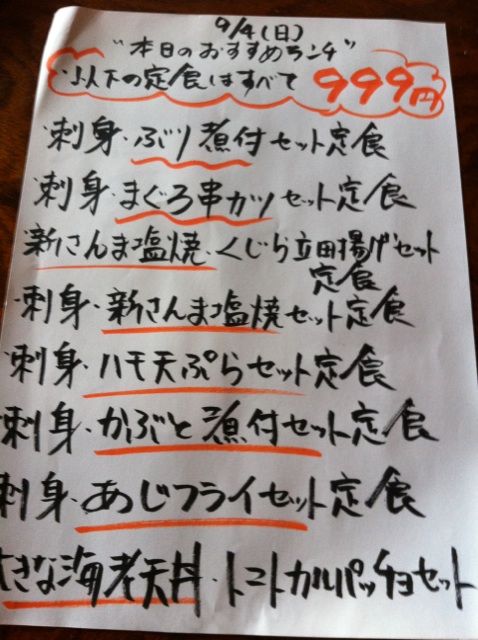 9/4(日)
"本日のおすすめランチ"
以下の定食はすべて 999円
・刺身・ぶり煮付セット定食
・刺身・まぐろ串カツセット定食
新さんま塩焼・くじら立田揚げセット
定食
・刺身・新さんま塩焼セット定食
刺身・ハモ天ぷらセット定食
刺身・かぶと煮付セット定食
刺身・あじフライセット定食
大きな海老天丼・トマトカルパッチョセット